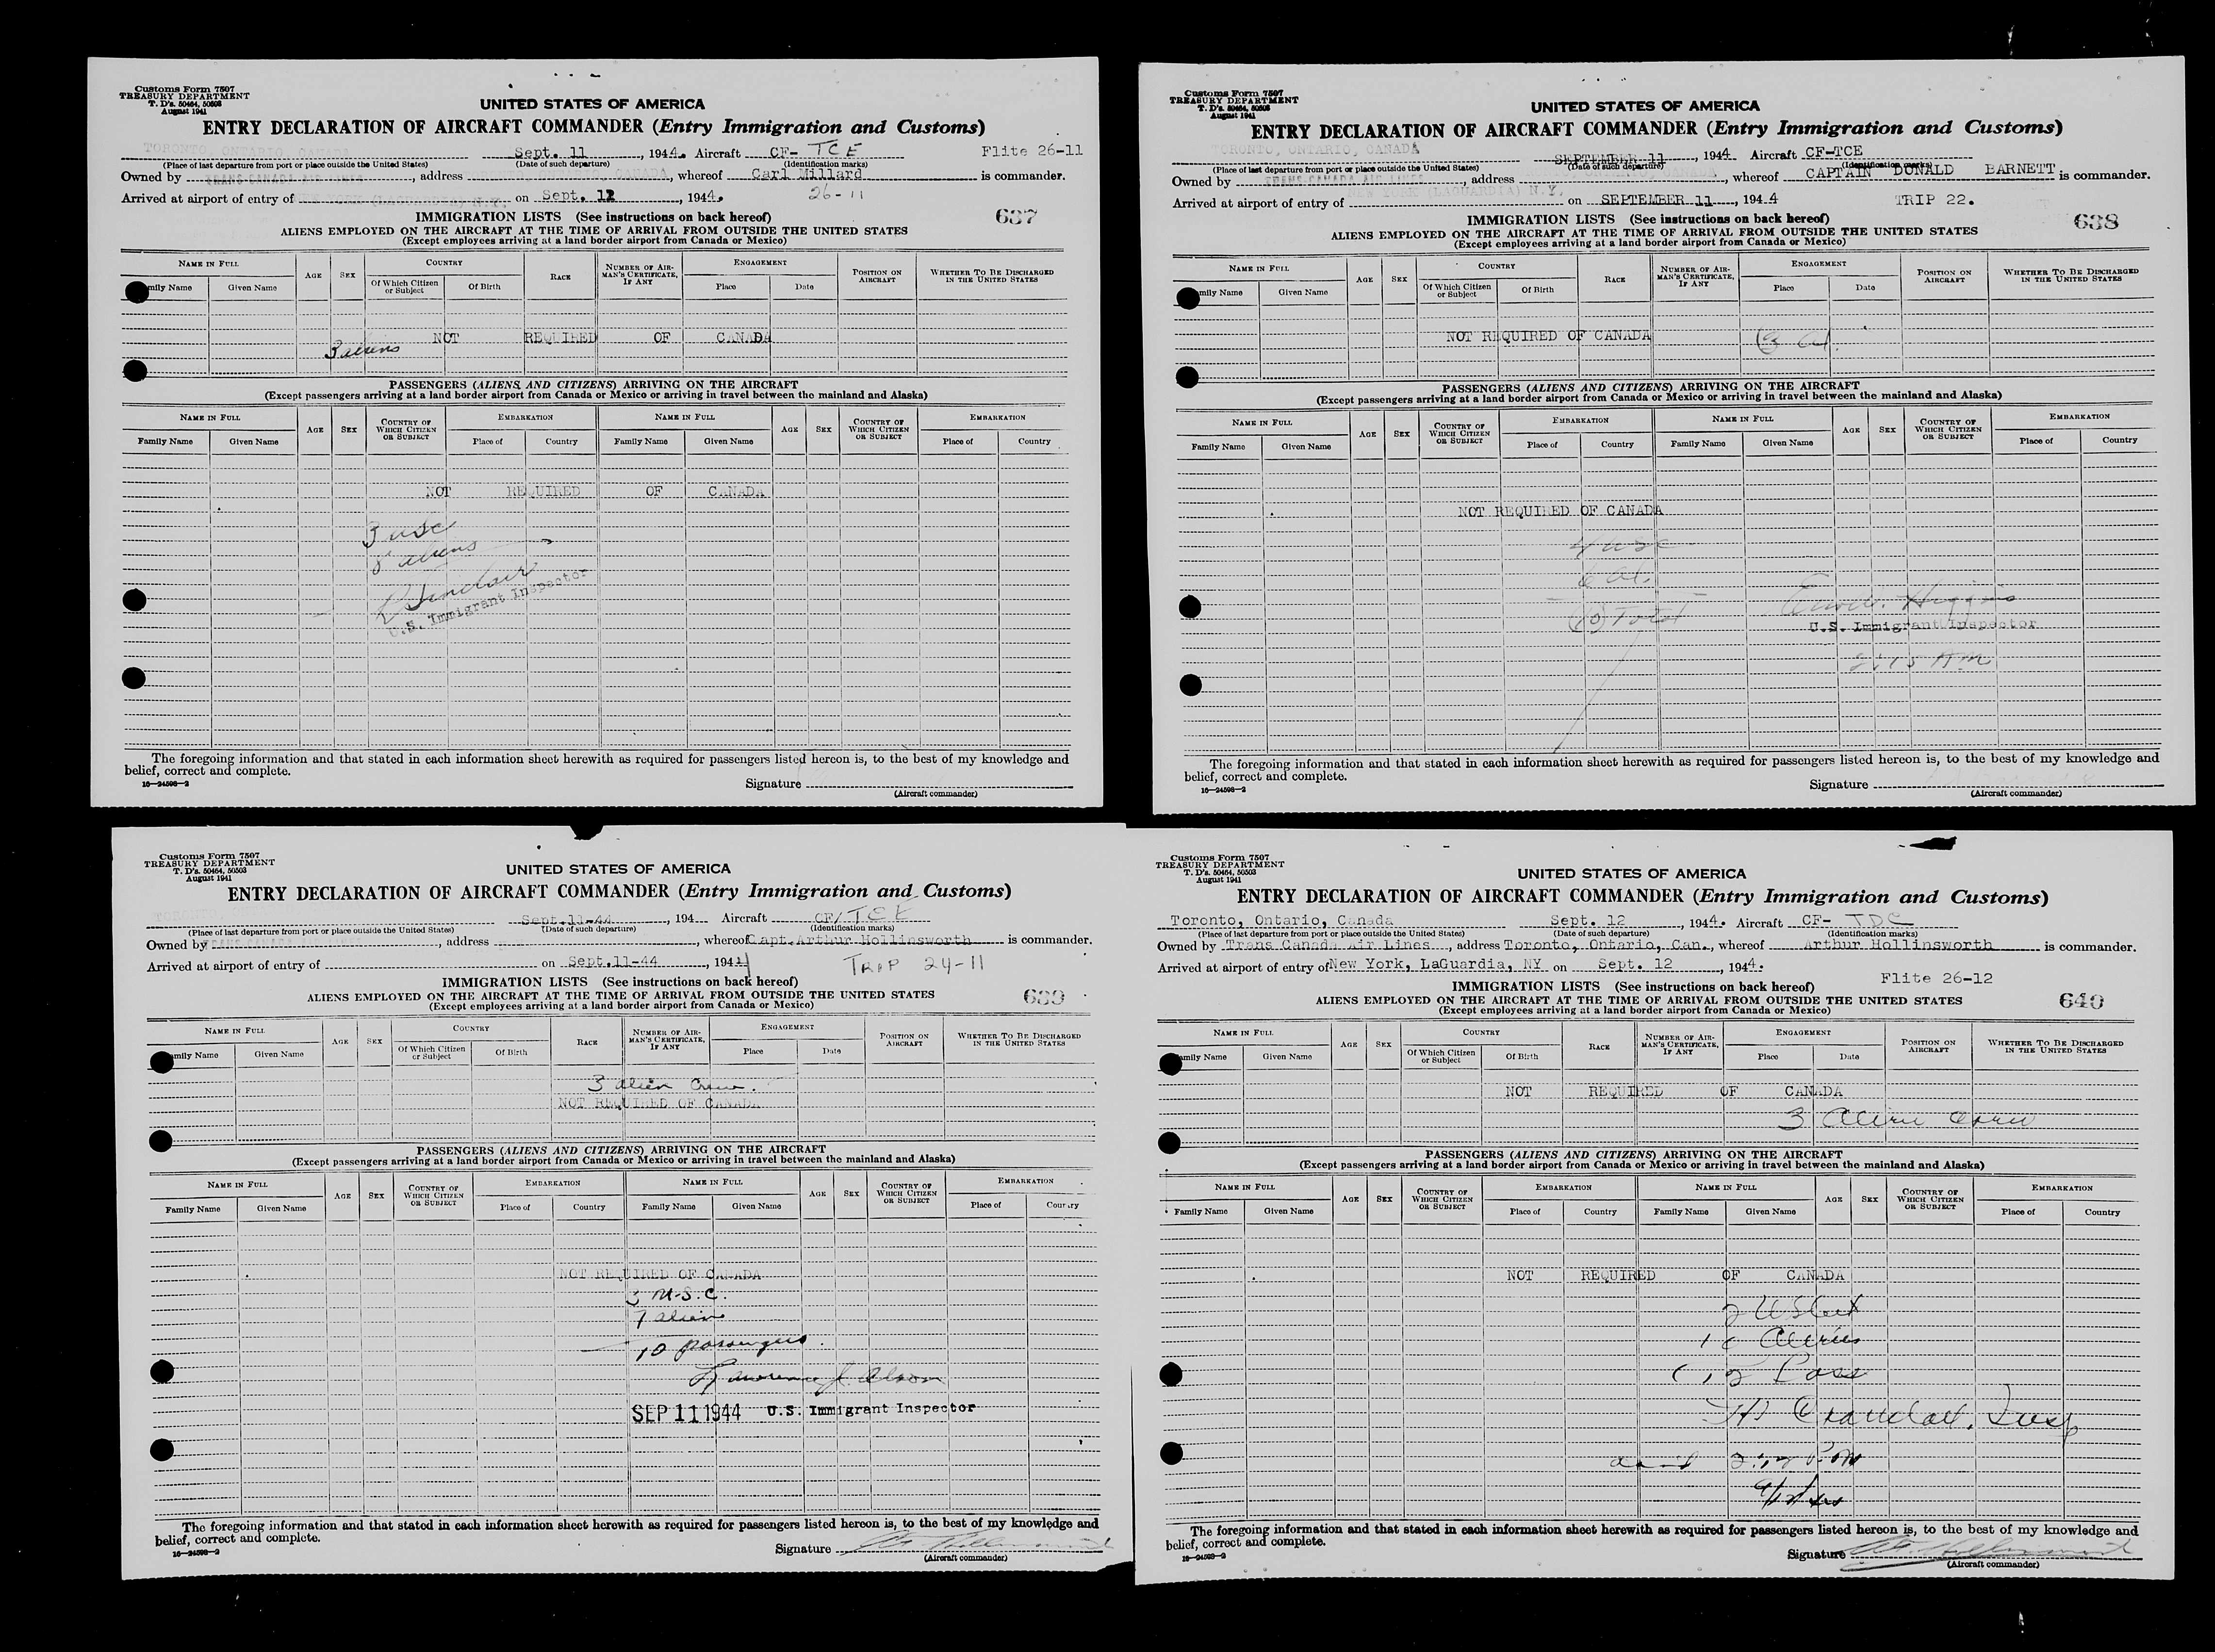 Customs Form 7507
TREASURY DEPARTMENT
T. D's. 50464, 50503
August 1941
UNITED STATES OF AMERICA
ENTRY DECLARATION OF AIRCRAFT COMMANDER (Entry Immigration and Customs)
TORONTO, ONTARIO, CANADA Sept. 11, 1944. Aircraft CF- TCE Flite 26-11
(Place of last departure from port or place outside the United States) (Date of such departure) (Identification marks)
Owned by TRANS CANADA AIR LINES, address TORONTO, ONTARIO, CANADA, whereof Carl Millard is commander.
Arrived at airport of entry of NEW YORK (LAGUARDIA) N.Y. on Sept. 12, 1944. 26-11
IMMIGRATION LISTS (See instructions on back hereof) 637
ALIENS EMPLOYED ON THE AIRCRAFT AT THE TIME OF ARRIVAL FROM OUTSIDE THE UNITED STATES
(Except employees arriving at a land border airport from Canada or Mexico)
NAME IN FULL AGE SEX COUNTRY RACE NUMBER OF AIRMAN'S CERTIFICATE, IF ANY ENGAGEMENT POSITION ON AIRCRAFT WHETHER TO BE DISCHARGED IN THE UNITED STATES
mily Name Given Name Of Which Citizen or Subject Of Birth Place Date
NOT REQUIRED OF CANADA
3 aliens
PASSENGERS (ALIENS AND CITIZENS) ARRIVING ON THE AIRCRAFT
(Except passengers arriving at a land border airport from Canada or Mexico or arriving in travel between the mainland and Alaska)
NAME IN FULL AGE SEX COUNTRY OF WHICH CITIZEN OR SUBJECT EMBARKATION NAME IN FULL AGE SEX COUNTRY OF WHICH CITIZEN OR SUBJECT EMBARKATION
Family Name Given Name Place of Country Family Name Given Name Place of Country
NOT REQUIRED OF CANADA
3 usc
8 aliens
Sinclair
U.S. Immigrant Inspector
The foregoing information and that stated in each information sheet herewith as required for passengers listed hereon is, to the best of my knowledge and
belief, correct and complete.
Signature
16—24598-2 (Aircraft commander)
Customs Form 7507
TREASURY DEPARTMENT
T. D's. 50464, 50503
August 1941
UNITED STATES OF AMERICA
ENTRY DECLARATION OF AIRCRAFT COMMANDER (Entry Immigration and Customs)
TORONTO, ONTARIO, CANADA SEPTEMBER 11, 1944 Aircraft CF-TCE
(Place of last departure from port or place outside the United States) (Date of such departure) (Identification marks)
Owned by TRANS CANADA AIR LINES, address, whereof CAPTAIN DONALD BARNETT is commander.
Arrived at airport of entry of NEW YORK (LAGUARDIA) N.Y. on SEPTEMBER 11, 1944 TRIP 22.
IMMIGRATION LISTS (See instructions on back hereof) 638
ALIENS EMPLOYED ON THE AIRCRAFT AT THE TIME OF ARRIVAL FROM OUTSIDE THE UNITED STATES
(Except employees arriving at a land border airport from Canada or Mexico)
NAME IN FULL AGE SEX COUNTRY RACE NUMBER OF AIRMAN'S CERTIFICATE, IF ANY ENGAGEMENT POSITION ON AIRCRAFT WHETHER TO BE DISCHARGED IN THE UNITED STATES
mily Name Given Name Of Which Citizen or Subject Of Birth Place Date
NOT REQUIRED OF CANADA (3 al.
PASSENGERS (ALIENS AND CITIZENS) ARRIVING ON THE AIRCRAFT
(Except passengers arriving at a land border airport from Canada or Mexico or arriving in travel between the mainland and Alaska)
NAME IN FULL AGE SEX COUNTRY OF WHICH CITIZEN OR SUBJECT EMBARKATION NAME IN FULL AGE SEX COUNTRY OF WHICH CITIZEN OR SUBJECT EMBARKATION
Family Name Given Name Place of Country Family Name Given Name Place of Country
NOT REQUIRED OF CANADA
4 usc
6 al.
(10) Total
Higgins
U.S. Immigrant Inspector
The foregoing information and that stated in each information sheet herewith as required for passengers listed hereon is, to the best of my knowledge and
belief, correct and complete.
Signature
16—24598-2 (Aircraft commander)
Customs Form 7507
TREASURY DEPARTMENT
T. D's. 50464, 50503
August 1941
UNITED STATES OF AMERICA
ENTRY DECLARATION OF AIRCRAFT COMMANDER (Entry Immigration and Customs)
Sept.11-44, 194 Aircraft CF/TCE
(Place of last departure from port or place outside the United States) (Date of such departure) (Identification marks)
Owned by TRANS CANADA AIR LINES, address, whereof Capt.Arthur Hollinsworth is commander.
Arrived at airport of entry of on Sept.11-44, 1944 TRIP 24-11
IMMIGRATION LISTS (See instructions on back hereof) 639
ALIENS EMPLOYED ON THE AIRCRAFT AT THE TIME OF ARRIVAL FROM OUTSIDE THE UNITED STATES
(Except employees arriving at a land border airport from Canada or Mexico)
NAME IN FULL AGE SEX COUNTRY RACE NUMBER OF AIRMAN'S CERTIFICATE, IF ANY ENGAGEMENT POSITION ON AIRCRAFT WHETHER TO BE DISCHARGED IN THE UNITED STATES
mily Name Given Name Of Which Citizen or Subject Of Birth Place Date
3 alien crew.
NOT REQUIRED OF CANADA
PASSENGERS (ALIENS AND CITIZENS) ARRIVING ON THE AIRCRAFT
(Except passengers arriving at a land border airport from Canada or Mexico or arriving in travel between the mainland and Alaska)
NAME IN FULL AGE SEX COUNTRY OF WHICH CITIZEN OR SUBJECT EMBARKATION NAME IN FULL AGE SEX COUNTRY OF WHICH CITIZEN OR SUBJECT EMBARKATION
Family Name Given Name Place of Country Family Name Given Name Place of Country
NOT REQUIRED OF CANADA
3 U.S.C.
7 aliens
10 passengers.
Lawrence J. Olson
SEP 11 1944 U.S. Immigrant Inspector
The foregoing information and that stated in each information sheet herewith as required for passengers listed hereon is, to the best of my knowledge and
belief, correct and complete.
Signature
16—24598-2 (Aircraft commander)
Customs Form 7507
TREASURY DEPARTMENT
T. D's. 50464, 50503
August 1941
UNITED STATES OF AMERICA
ENTRY DECLARATION OF AIRCRAFT COMMANDER (Entry Immigration and Customs)
Toronto, Ontario, Canada Sept. 12, 1944. Aircraft CF- TDC
(Place of last departure from port or place outside the United States) (Date of such departure) (Identification marks)
Owned by Trans Canada Air Lines, address Toronto, Ontario, Can., whereof Arthur Hollinsworth is commander.
Arrived at airport of entry of New York, LaGuardia, NY on Sept. 12, 1944.
Flite 26-12
IMMIGRATION LISTS (See instructions on back hereof) 640
ALIENS EMPLOYED ON THE AIRCRAFT AT THE TIME OF ARRIVAL FROM OUTSIDE THE UNITED STATES
(Except employees arriving at a land border airport from Canada or Mexico)
NAME IN FULL AGE SEX COUNTRY RACE NUMBER OF AIRMAN'S CERTIFICATE, IF ANY ENGAGEMENT POSITION ON AIRCRAFT WHETHER TO BE DISCHARGED IN THE UNITED STATES
mily Name Given Name Of Which Citizen or Subject Of Birth Place Date
NOT REQUIRED OF CANADA
3 Alien Crew
PASSENGERS (ALIENS AND CITIZENS) ARRIVING ON THE AIRCRAFT
(Except passengers arriving at a land border airport from Canada or Mexico or arriving in travel between the mainland and Alaska)
NAME IN FULL AGE SEX COUNTRY OF WHICH CITIZEN OR SUBJECT EMBARKATION NAME IN FULL AGE SEX COUNTRY OF WHICH CITIZEN OR SUBJECT EMBARKATION
Family Name Given Name Place of Country Family Name Given Name Place of Country
NOT REQUIRED OF CANADA
Aliens
Pass
Crandall, Insp
The foregoing information and that stated in each information sheet herewith as required for passengers listed hereon is, to the best of my knowledge and
belief, correct and complete.
Signature
16—24598-2 (Aircraft commander)